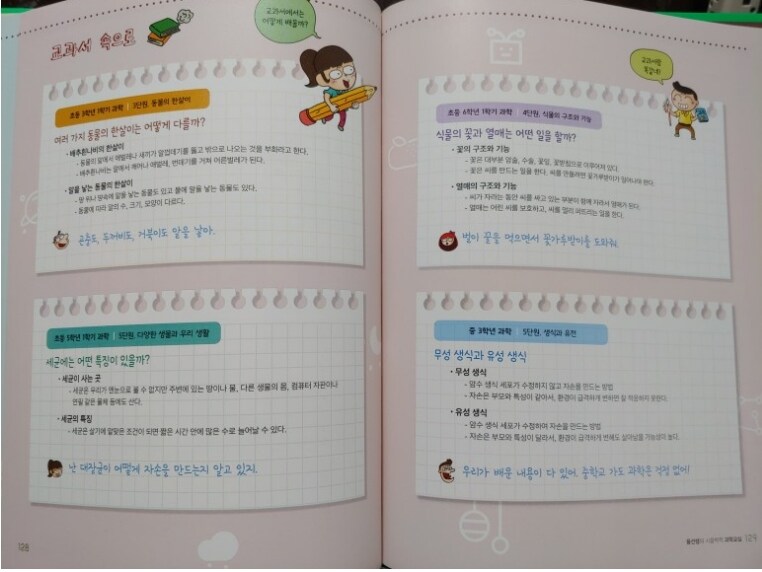 교과서 속으로
교과서에서는
어떻게 배울까?
초등 3학년 1학기 과학 | 3단원. 동물의 한살이
여러 가지 동물의 한살이는 어떻게 다를까?
• 배추흰나비의 한살이
- 동물이 알에서 애벌레나 새끼가 알껍데기를 뚫고 밖으로 나오는 것을 부화라고 한다.
- 배추흰나비는 알에서 깨어나 애벌레, 번데기를 거쳐 어른벌레가 된다.
• 알을 낳는 동물의 한살이
- 땅 위나 땅속에 알을 낳는 동물도 있고 물에 알을 낳는 동물도 있다.
- 동물에 따라 알의 수, 크기, 모양이 다르다.
곤충도, 두꺼비도, 거북이도 알을 낳아.
초등 5학년 1학기 과학 | 5단원. 다양한 생물과 우리 생활
세균에는 어떤 특징이 있을까?
• 세균이 사는 곳
- 세균은 우리가 맨눈으로 볼 수 없지만 주변에 있는 땅이나 물, 다른 생물의 몸, 컴퓨터 자판이나
연필 같은 물체 등에도 산다.
• 세균의 특징
- 세균은 살기에 알맞은 조건이 되면 짧은 시간 안에 많은 수로 늘어날 수 있다.
난 대장균이 어떻게 자손을 만드는지 알고 있지.
128
교과서랑
똑같네!
초등 6학년 1학기 과학 | 4단원. 식물의 구조와 기능
식물의 꽃과 열매는 어떤 일을 할까?
• 꽃의 구조와 기능
- 꽃은 대부분 암술, 수술, 꽃잎, 꽃받침으로 이루어져 있다.
- 꽃은 씨를 만드는 일을 한다. 씨를 만들려면 꽃가루받이가 일어나야 한다.
• 열매의 구조와 기능
- 씨가 자라는 동안 씨를 싸고 있는 부분이 함께 자라서 열매가 된다.
- 열매는 어린 씨를 보호하고, 씨를 멀리 퍼뜨리는 일을 한다.
벌이 꿀을 먹으면서 꽃가루받이를 도와줘.
중 3학년 과학 | 5단원. 생식과 유전
무성 생식과 유성 생식
• 무성 생식
- 암수 생식 세포가 수정하지 않고 자손을 만드는 방법
- 자손은 부모와 특성이 같아서, 환경이 급격하게 변하면 잘 적응하지 못한다.
• 유성 생식
- 암수 생식 세포가 수정하여 자손을 만드는 방법
- 자손은 부모와 특성이 달라서, 환경이 급격하게 변해도 살아남을 가능성이 높다.
우리가 배운 내용이 다 있어. 중학교 가도 과학은 걱정 없어!
과학교실 129